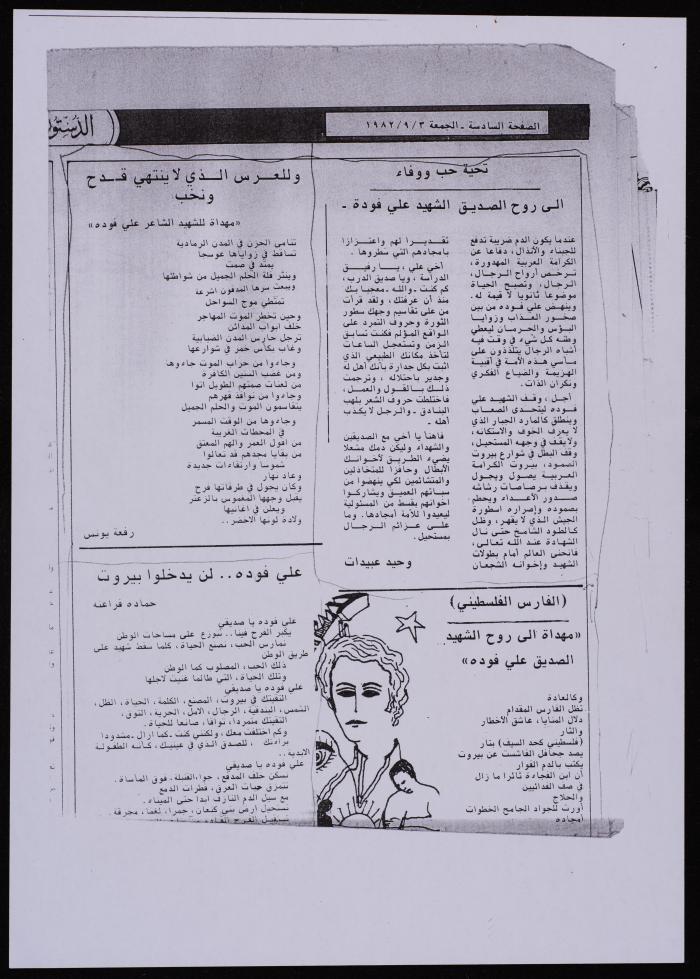 الدستور
الصفحة السادسة - الجمعة ١٩٨٢/٩/٣
تحية حب ووفاء
الى روح الصديق الشهيد علي فودة -
عندما يكون الدم ضريبة تدفع
للجبناء والأنذال، دفاعا عن
الكرامة العربية المهدورة،
ترخص أرواح الرجال،
الرجال، وتصبح الحياة
موضوعا ثانويا لا قيمة له.
وينهض علي فوده من بين
صخور العذاب وزوايا
البؤس والحرمان ليعطي
وطنه كل شيء في وقت فيه
أشباه الرجال يتلذذون على
مآسي هذه الأمة في أقبية
الهزيمة والضياع الفكري
ونكران الذات.
أجل، وقف الشهيد علي
فوده ليتحدى الصعاب
وينطلق كالمارد الجبار الذي
لا يعرف الخوف والاستكانه،
ولا يقف في وجهه المستحيل،
وقف البطل في شوارع بيروت
الصمود، بيروت الكرامة
العربية يصول ويجول
ويقذف برصاصات رشاشه
صدور الأعداء ويحطم
بصموده وإصراره اسطورة
الجيش الذي لا يقهر، وظل
كالطود الشامخ حتى نال
الشهادة عند الله تعالى،
فانحنى العالم أمام بطولات
الشهيد وإخوانه الشجعان
تقديرا لهم واعتزازا
بأمجادهم التي سطروها.
أخي علي، يا رفيق
الدراسة، ويا صديق الدرب،
كم كنت - والله - معجبا بك
منذ أن عرفتك، ولقد قرأت
من على تقاسيم وجهك سطور
الثورة وحروف التمرد على
الواقع المؤلم فكنت تسابق
الزمن وتستعجل الساعات
لتأخذ مكانك الطبيعي الذي
اثبت بكل جدارة بأنك أهل له
وجدير باحتلاله، وترجمت
ذلك بالقول والعمل،
فاختلطت حروف الشعر بلهب
البنادق - والرجل لا يكذب
أهله -
فاهنأ يا أخي مع الصديقين
والشهداء وليكن دمك مشعلا
يضيء الطريق لأخوانك
الأبطال وحافزا للمتخاذلين
والمتشائمين لكي ينهضوا من
سباتهم العميق ويشاركوا
اخوانهم بقسط من المسئولية
ليعيدوا للأمة أمجادها. وما
على عزائم الرجال
بمستحيل.
وحيد عبيدات
وللعرس الذي لا ينتهي قدح
ونخب
«مهداة للشهيد الشاعر علي فوده»
تنامى الحزن في المدن الرمادية
تساقط في زواياها عوسجا
يمتد في صمت
وينثر فلة الحلم الجميل من شواطئها
ويبعث سرها المدفون اشرعة
تمتطي موج السواحل
وحين تخطر الموت المهاجر
خلف ابواب المدائن
ترجل حارس المدن الضبابية
وغاب بكأس خمر في شوارعها
وجاءوا من حراب الموت جاءوها
ومن عصب السنين الكافرة
من لعنات صمتهم الطويل اتوا
وجاءوا من نوافذ قهرهم
يتقاسمون الموت والحلم الجميل
وجاءوها من الوقت المسمر
في المحطات الغريبة
من افول العمر والهم المعتق
من بقايا مجدهم قد تعالوا
شموسا وارتقاءات جديدة
وعاد نهار
وكان يجول في طرقاتها فرح
يقبل وجهها المغموس بالزعتر
ويعلن في اغانيها
ولادة لونها الاخضر..
رفعة يونس
علي فوده.. لن يدخلوا بيروت
حماده فراعنه
علي فوده يا صديقي
يكبر الفرح فينا.. نتوزع على مساحات الوطن
نمارس الحب، نصنع الحياة، كلما سقط شهيد على
طريق الوطن
ذلك الحب، المصلوب كما الوطن
وتلك الحياة، التي طالما غنيت لاجلها
علي فوده يا صديقي
التقيتك في بيروت، المصنع، الكلمة، الحياة، الظل،
الشمس، البندقية، الرجال، الامل، الحرية، التوق،
التقيتك متمردا، تواقا، صانعا للحياة.
وكم اختلفت معك، ولكني كنت - كما ازال - مشدودا
براءتك، للصدق الذي في عينيك، كأنه الطفولة
الابدية..
علي فوده يا صديقي
نسكن خلف المدفع، حواء القنبلة، فوق المأساة.
(الفارس الفلسطيني)
«مهداة الى روح الشهيد
الصديق علي فوده»
وكالعادة
تظل الفارس المقدام
دلال المنايا، عاشق الأخطار
والثار
(فلسطيني كحد السيف) بتار
يصد جحافل الفاشست عن بيروت
يكتب بالدم الفوار
أن ابن الفجاءة ثائرا ما زال
في صف الفدائيين
والحلاج
أورث للجواد الجامح الخطوات
أمجاده